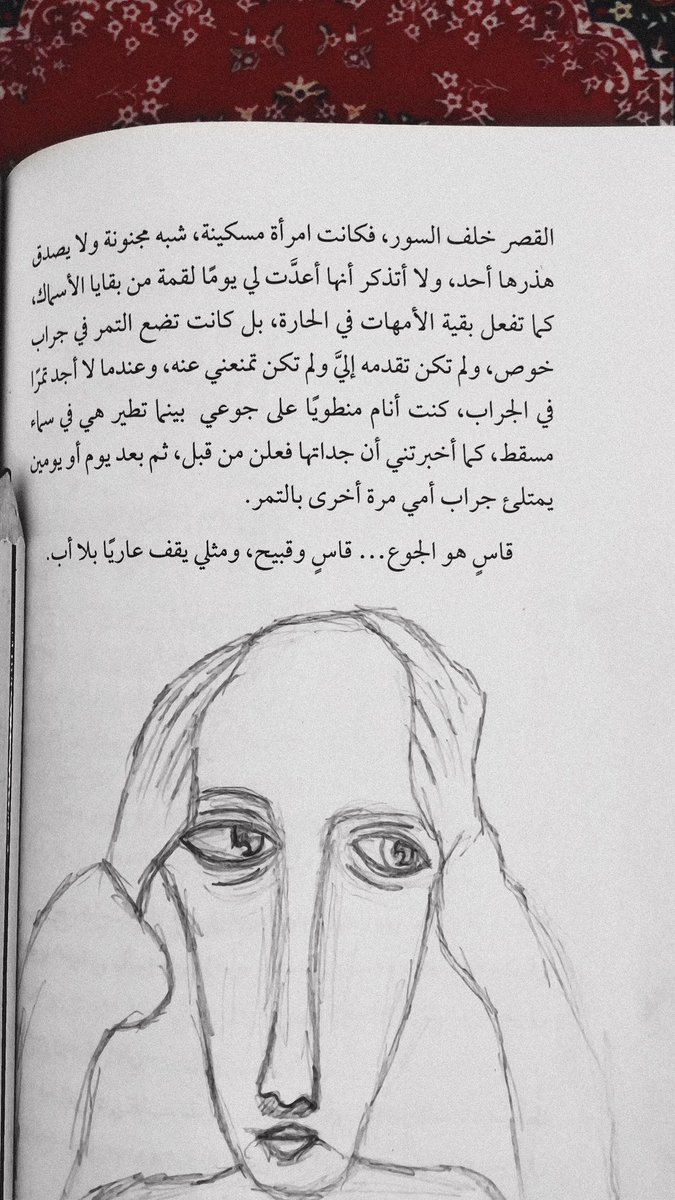 القصر خلف السور، فكانت امرأة مسكينة، شبه مجنونة ولا يصدق
هذرها أحد، ولا أتذكر أنها أعدَّت لي يومًا لقمة من بقايا الأسماك،
كما تفعل بقية الأمهات في الحارة، بل كانت تضع التمر في جراب
خوص، ولم تكن تقدمه إليَّ ولم تكن تمنعني عنه، وعندما لا أجد تمرًا
في الجراب، كنت أنام منطويًا على جوعي بينما تطير هي في سماء
مسقط، كما أخبرتني أن جداتها فعلن من قبل، ثم بعد يوم أو يومين
يمتلئ جراب أمي مرة أخرى بالتمر.
قاسٍ هو الجوع... قاسٍ وقبيح، ومثلي يقف عاريًا بلا أب.